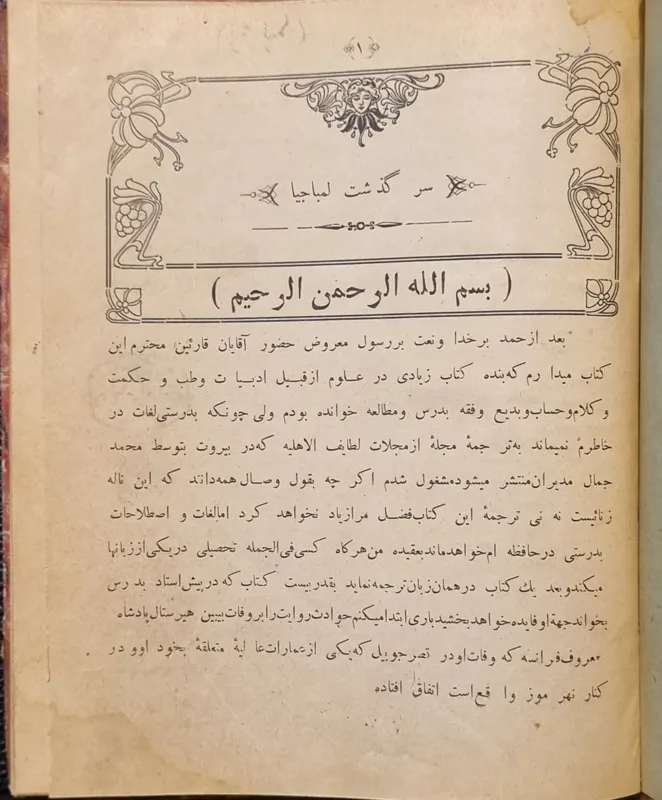 ﴿١﴾
سر گذشت لمباجیا
( بسم الله الرحمن الرحیم )
بعد از حمد بر خدا و نعت بررسول معروض حضور آقایان قارئین محترم این
کتاب میدا رم که بنده کتاب زیادی در علوم از قبیل ادبیا ت وطب و حکمت
و کلام و حساب و بدیع وفقه بدرس ومطالعه خوانده بودم ولی چونکه بدرستی لغات در
خاطرم نمیماند به تر جمهٔ مجلهٔ از مجلات لطایف الاهلیه که در بیروت بتوسط محمد
جمال مدیران منتشر میشود مشغول شدم اکر چه بقول وصال همه دانند که این ناله
ز نائیست نه نی ترجمهٔ این کتاب فضل مرا زیاد نخواهد کرد اما لغات و اصطلاحات
بدرستی در حافظه ام خواهد ماند بعقیده من هر کاه کسی فی الجمله تحصیلی در یکی از زبانها
میکند و بعد یك کتاب در همان زبان ترجمه نماید بقدر بیست کتاب که در پیش استاد بد رس
بخواند جههٔ او فایده خواهد بخشید باری ابتدا میکنم حوادث روایت را بر وفات بیبین هیرستال پادشاه
معروف فرانسه که وفات او در قصر جوبیل که یکی از عمارات عا لیهٔ متعلقهٔ بخود او و در
کنار نهر موز وا قع است اتفاق افتاده